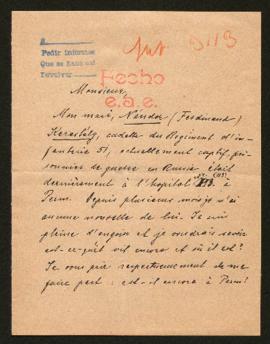 Pedir informes
Fecho
e.a.e.
Monsieur,
Mon mari, Nandor (Ferdinand)
cadet du Regiment d'in-
fanterie 51, actuellement captif, pri-
sonnier de guerre en Russie était
dernièrement à l'hopital à
Perm. Depuis plusieurs mois je n'ai
aucune nouvelle de lui. Je suis
pleine d'angoisse et je voudrais savoir
est-ce-qu'il vit encore et où il est?
Je vous prie respectueusement de me
faire part: est-il encore à Perm?